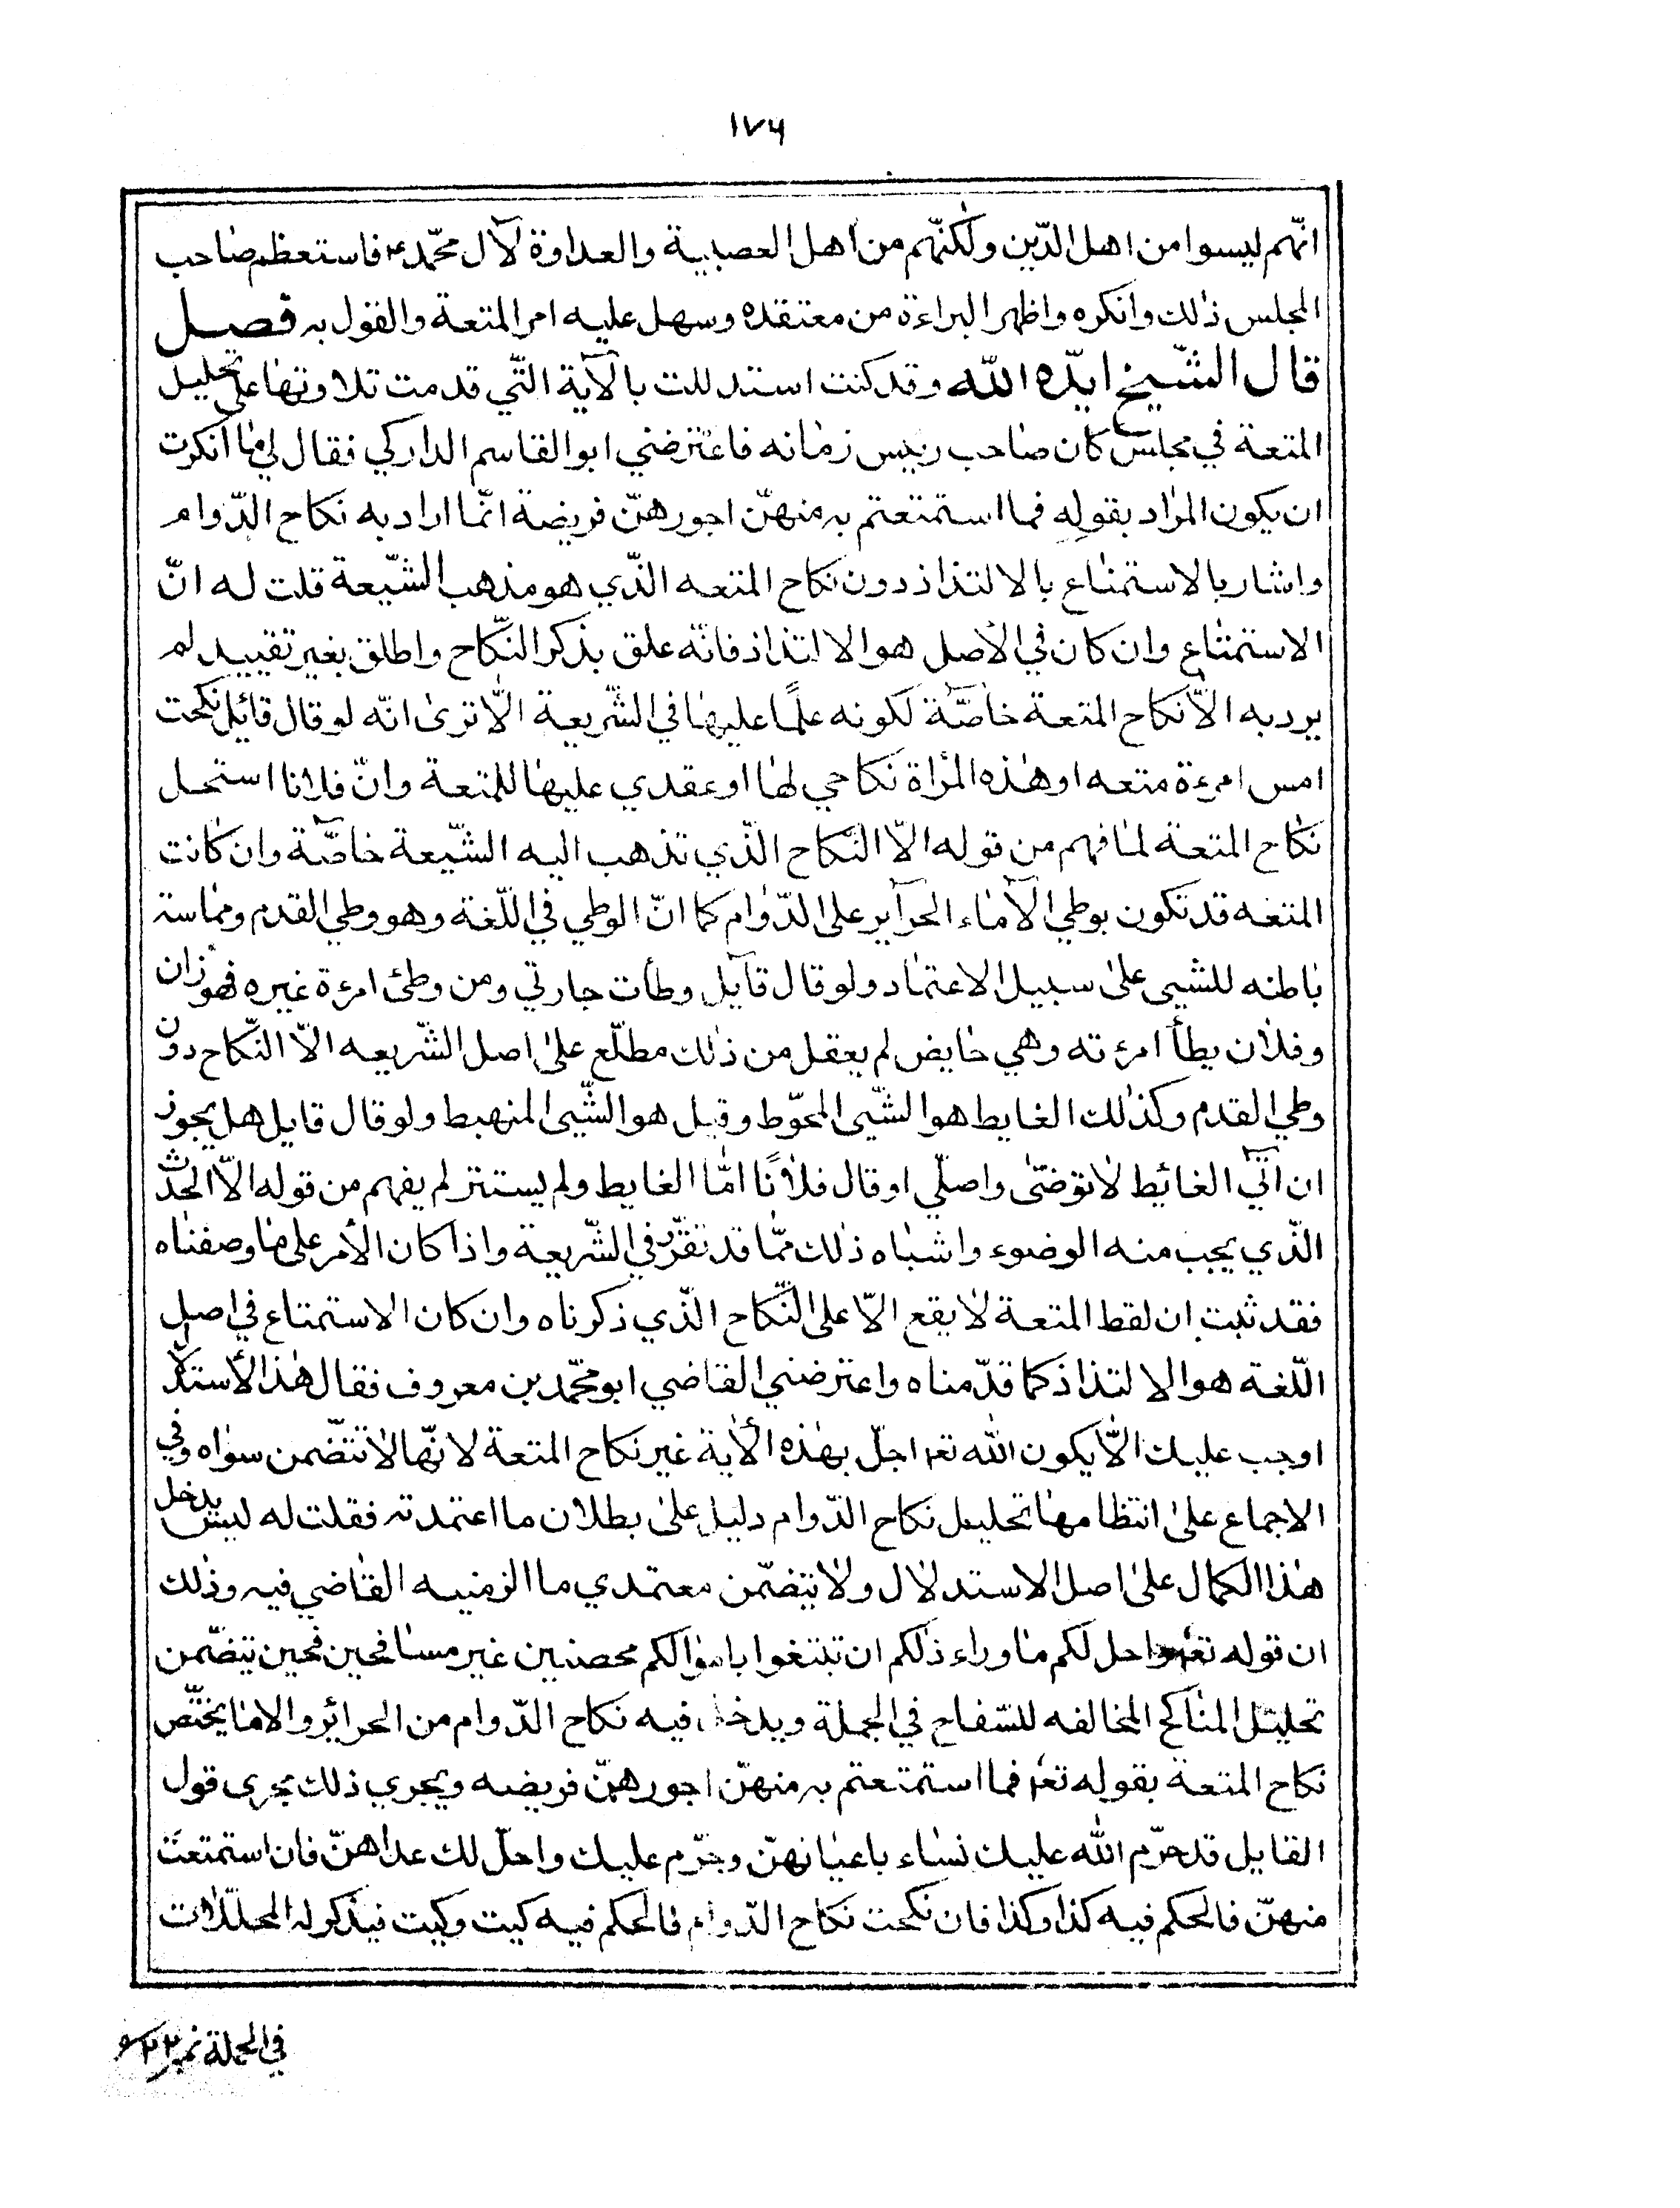 ١٧٦
انّهم ليسوا من اهل الدّين ولكنّهم من اهل العصبية والعداوة لآل محمّد ع فاستعظم صاحب
المجلس ذلك وانكره واظهر البراءة من معتقده وسهل عليه امر المتعة والقول به فصل
قال الشّيخ ايّده الله وقد كنت استدللت بالآية الّتي قدمت تلاوتها على تحليل
المتعة في مجلس كان صاحب رييس زمانه فاعترضني ابو القاسم الداركي فقال لي ما انكرت
ان يكون المراد بقوله فما استمتعتم به منهنّ اجورهنّ فريضة انّما اراد به نكاح الدّوام
واشار بالاستمتاع بالالتذاذ دون نكاح المتعه الّذي هو مذهب الشّيعة قلت له انّ
الاستمتاع وان كان في الأصل هو الالتذاذ فانّه علق بذكر النّكاح واطلق بغير تقييد لم
يرد به الاّ نكاح المتعة خاصّة لكونه علمًا عليها في الشّريعة الّا ترى انّه لو قال قائل نكحت
امس امرءة متعه او هذه المرأة نكاحي لها او عقدي عليها للمتعة وانّ فلانا استحل
نكاح المتعة لما فهم من قوله الاّ النّكاح الّذي تذهب اليه الشّيعة خاصّة وان كانت
المتعه قد تكون بوطي الآماء الحرآير على الدّوام كما انّ الوطي في اللّغة وهو وطي القدم ومماسة
باطنه للشيى على سبيل الاعتماد ولو قال قآيل وطأت جارتي ومن وطئ امرءة غيره فهو زان
وفلان يطأ امرءته وهي حايض لم يعقل من ذلك مطلّع على اصل الشّريعه الاّ النّكاح دون
وطي القدم وكذلك الغايط هو الشّيى المحوّط وقيل هو الشّيى المنهبط ولو قال قايل هل يجوز
ان آتي الغائيط لا توضّى واصلّي او قال فلانًا امّا الغايط ولم يستتر لم يفهم من قوله الاّ الحدث
الّذي يجب منه الوضوء واشباه ذلك ممّا قد تقرّر في الشّريعة واذا كان الأمر على ما وصفناه
فقد ثبت ان لقط المتعة لا يقع الاّ على النّكاح الّذي ذكرناه وان كان الاستمتاع في اصل
اللّغة هو الالتذاذ كما قدّمناه واعترضني القاضي ابو محمّد بن معروف فقال هذا الأستدلال
اوجب عليك الاّ يكون الله تع احلّ بهذه الأية غير نكاح المتعة لانّها لا تتضّمن سواه وفي
الاجماع على انتظامها تحليل نكاح الدّوام دليل على بطلان ما اعتمدته فقلت له ليس يدخل
هذا الكمال على اصل الاستدلال ولا يتضمّن معتمدي ما الزمنيه القاضي فيه وذلك
ان قوله تع واحل لكم ما وراء ذلكم ان تبتغوا باموالكم محصنين غير مسافحين فحين تيضّمن
تحليل المناكح المخالفه للسّفاح في الجملة ويدخل فيه نكاح الدّوام من الحرائر والاما يختّص
نكاح المتعة بقوله تع فما استمتعتم به منهنّ اجورهنّ فريضه ويجري ذلك مجرى قول
القايل قد حرّم الله عليك نساء باعيانهنّ وحرّم عليك واحلّ لك عداهنّ فان استمتعت
منهنّ فالحكم فيه كذا وكذا فان نكحت نكاح الدّوام فالحكم فيه كيت وكيت فيذكر له المحلّلات
في الجملة